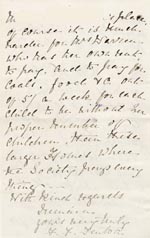 of course it is much
harder for
who has her own rent
to pay. and to pay for
Coals, food &c out
of 5/- a week, for each
child to be without her
proper number of
children, than these
larger Homes where
the Society pays every
thing.
With kind regards
I remain
yours very truly